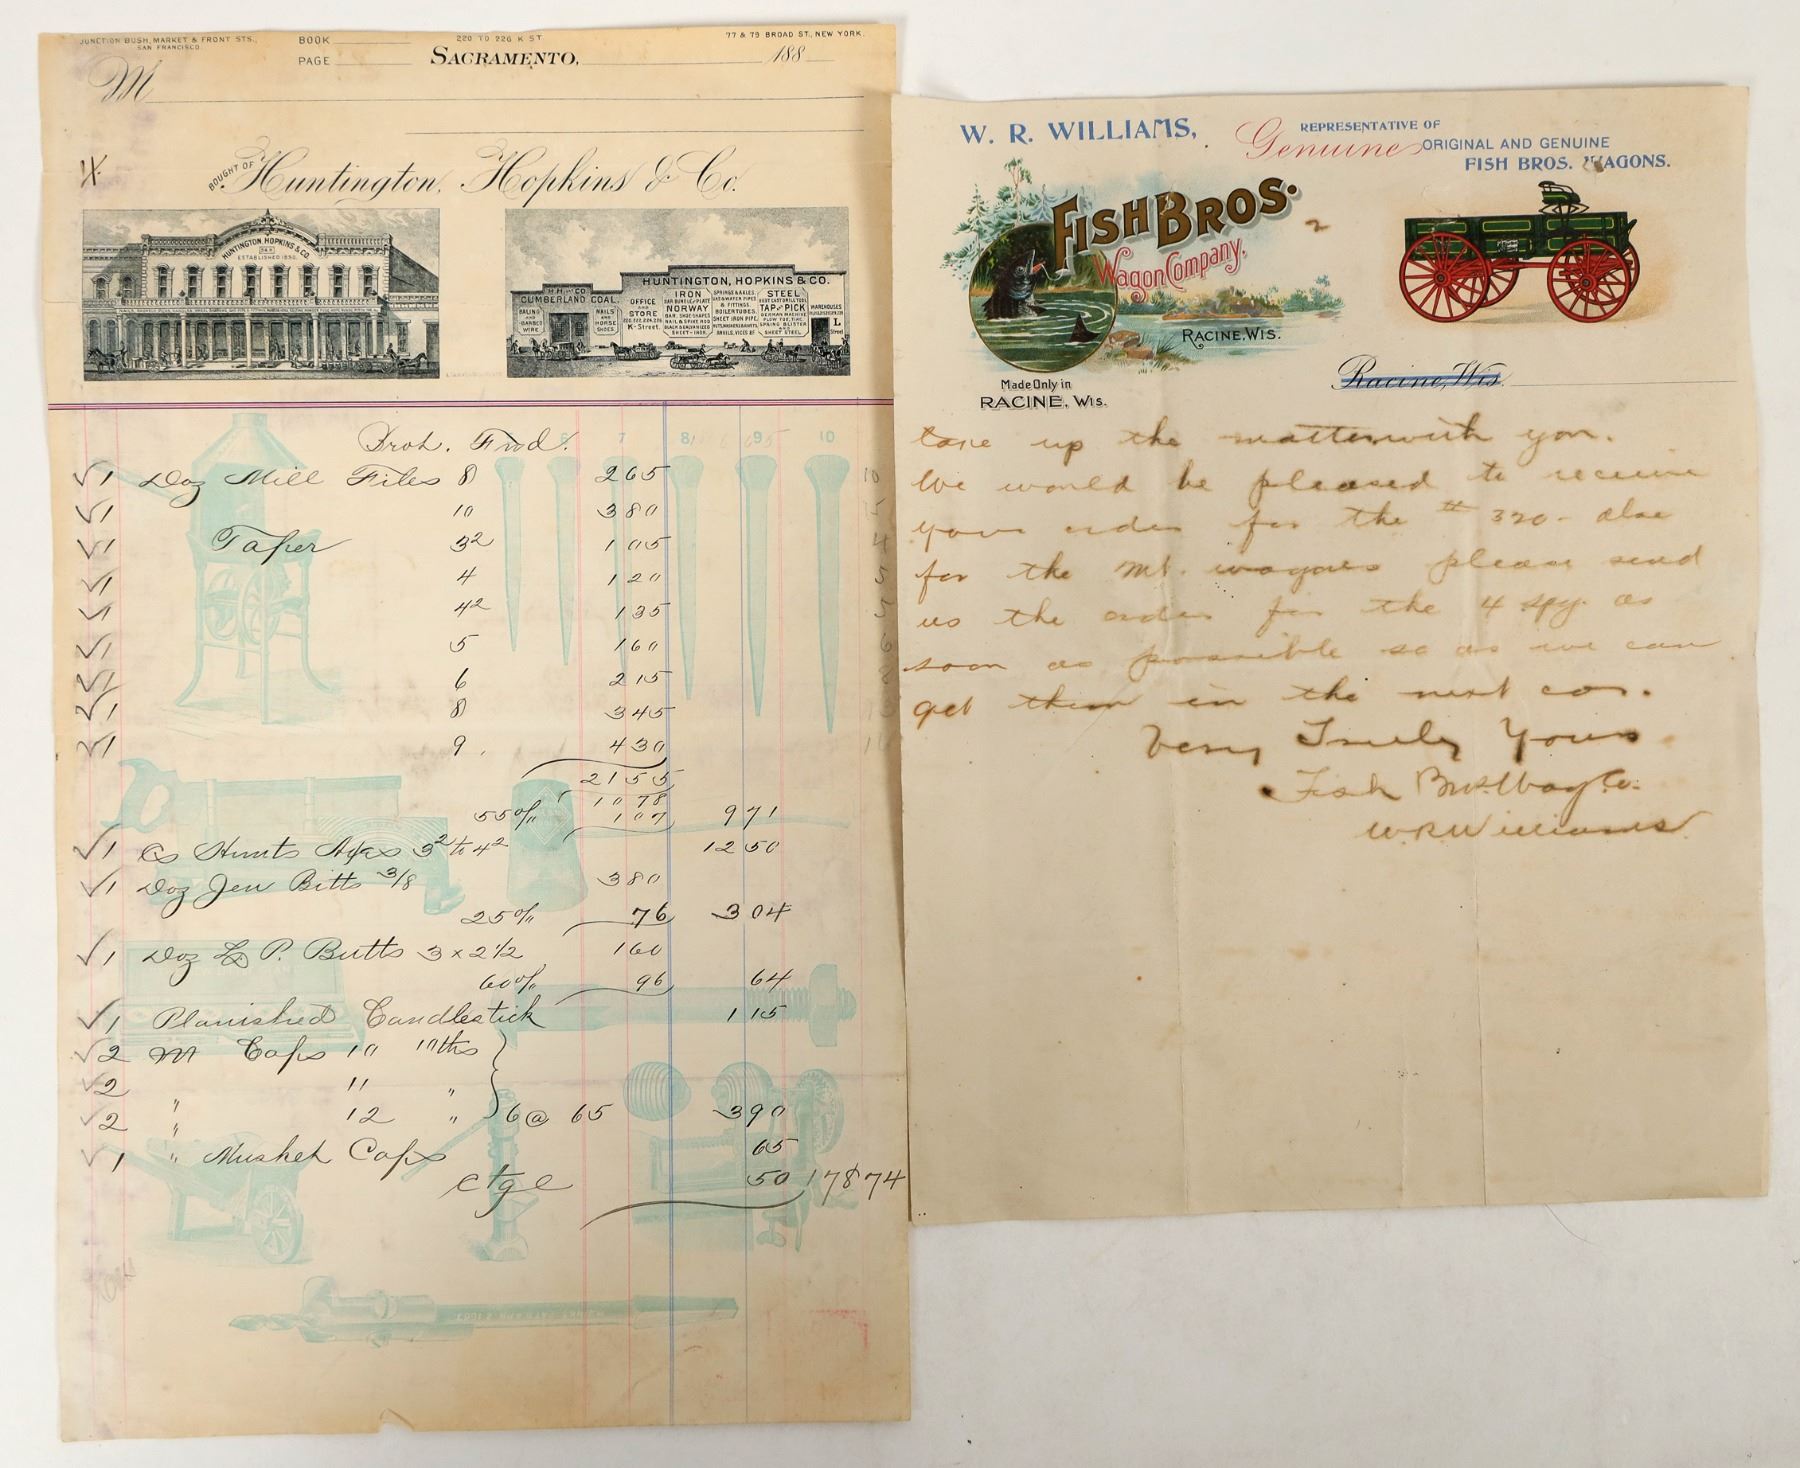 JUNCTION BUSH, MARKET & FRONT STS.,
SAN FRANCISCO.
BOOK
PAGE
220 TO 226 K ST.
SACRAMENTO,
77 & 79 BROAD ST., NEW YORK.
188
M
BOUGHT OF
Huntington, Hopkins & Co.
HUNTINGTON, HOPKINS & CO.
ESTABLISHED 1850.
HUNTINGTON, HOPKINS & CO.
CUMBERLAND COAL.
BALING AND BARBED WIRE
NAILS AND HORSE SHOES
OFFICE AND STORE
K-Street.
IRON
NORWAY
STEEL
TAP & PICK
WAREHOUSES
L Street
7 8 9 10
Brot. Fwd.
1 Doz Mill Files 8 265
1 10 380
1 Taper 3² 105
1 4 120
1 4² 135
1 5 160
1 6 215
1 8 345
1 9 430
2155
1078
55% 107 971
1 Cs Hunts Axes 3² to 4² 1250
1 Doz Jen Bitts 3/8 380
25% 76 304
1 Doz L P. Butts 3 x 2 1/2 160
60% 96 64
1 Planished Candlestick 115
2 M Caps 10 10ths
2 " 11 "
2 " 12 " 6 @ 65 390
1 " Musket Caps 65
ctge 50 178 74
W. R. WILLIAMS,
REPRESENTATIVE OF
Genuine ORIGINAL AND GENUINE
FISH BROS. WAGONS.
FISH BROS.
Wagon Company,
RACINE, WIS.
Made Only in
RACINE, WIS.
Racine, Wis.
2
take up the matter with you.
We would be pleased to receive
your order for the # 320 - also
for the Mt. wagons please send
us the order for the 4 spg. as
soon as possible so as we can
get them in the next car.
Very Truly Yours
Fish Bros. Wag. Co.
W.R. Williams